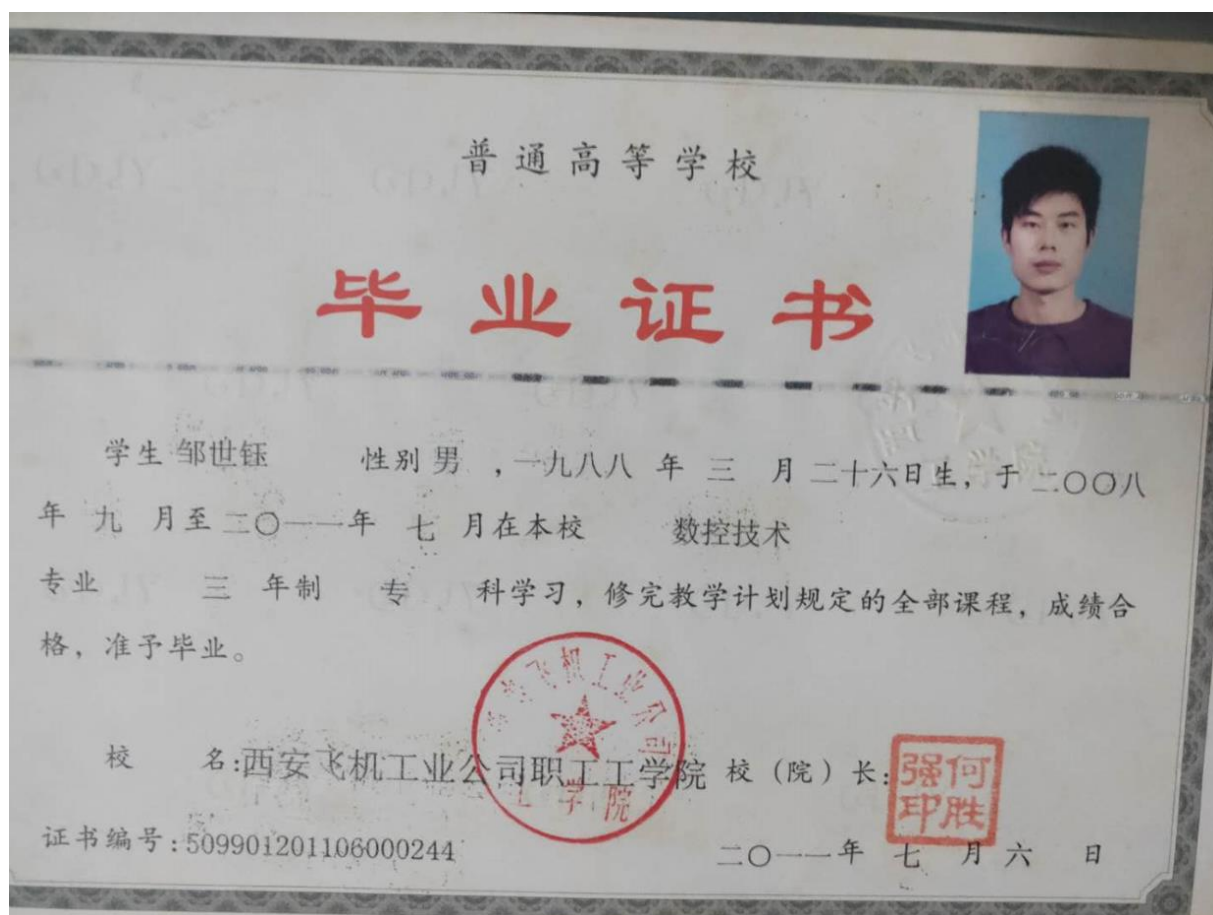 普通高等学校
毕业证书
学生 邹世钰 性别 男 ，一九八八 年 三 月 二十六日生，于 二〇〇八
年 九 月至 二〇一一年 七 月在本校 数控技术
专业 三 年制 专 科学习，修完教学计划规定的全部课程，成绩合
格，准予毕业。
校 名:西安飞机工业公司职工工学院 校（院）长:
何胜强印
工学院
证书编号:509901201106000244
二〇一一年 七 月 六 日